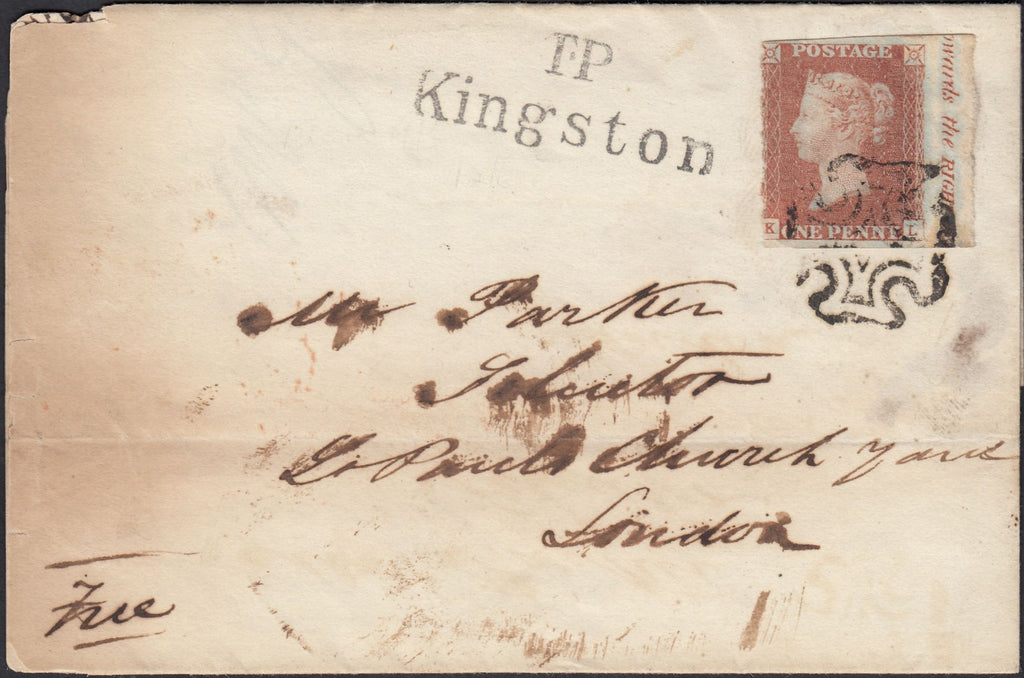 T.P
Kingston
POSTAGE
ONE PENNY
K L
owards the RIGH
Mr Parker
Solicitor
St Pauls Church Yard
London
Free